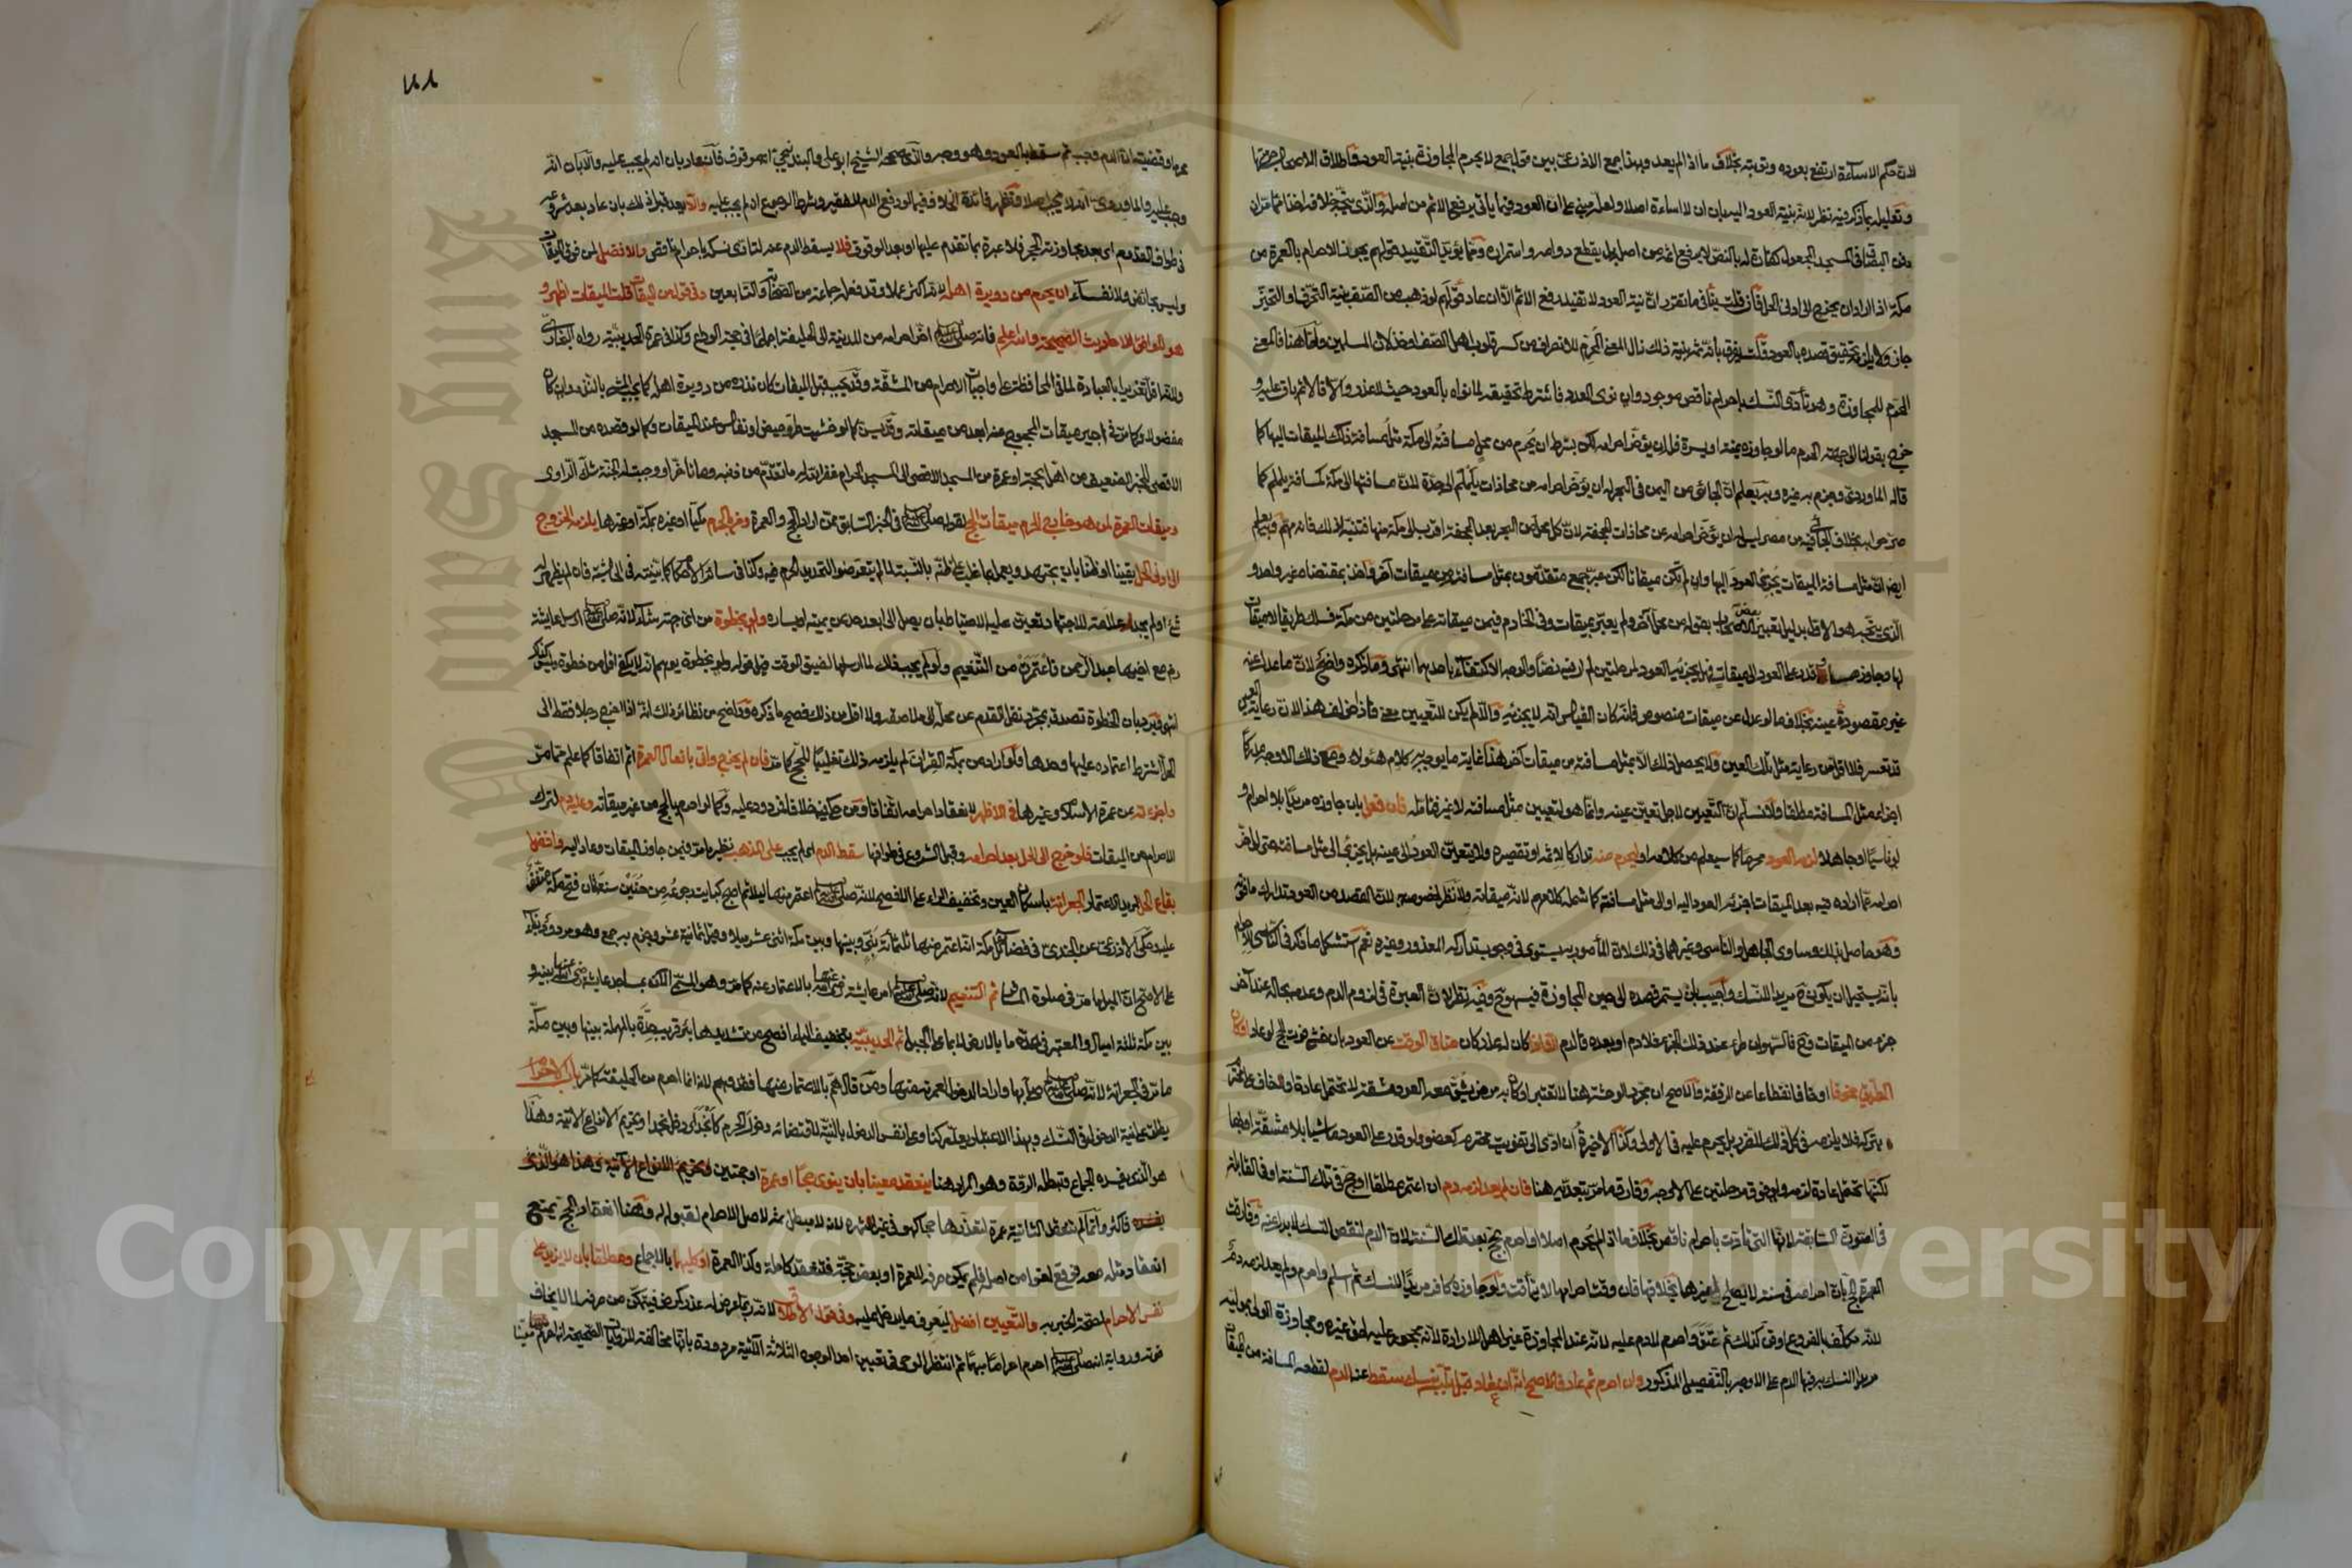 لان حكم الاساءة ارتفع بعوده وتوبته بخلاف ما اذا لم يعد وبهذا جمع الاذرعي بين قول جمع لا يحرم المجاوزة بنية العود واطلاق الاصحاب حرمتها
وتعليله بما ذكر فيه نظر لانه بنية العود اليه بان ان لا اساءة اصلا
دفن البصاق في المسجد المجعول كفارة له بالنص لا يرفع اثمه من اصله بل يقطع دوامه واستمراره ومما يؤيد التقييد قولهم يجوز الاحرام بالعمرة من
مكة اذا اراد ان يخرج الى ادنى الحل فان قلت ينافي ما تقرر ان نية العود لا تفيد رفع الاثم الا ان عاد قولهم لو ذهب من الصف بنية التحرف او التحيز
جاز ولا يلزمه تحقيق قصده بالعود قلت يفرق بأنه ثم بنية ذلك زال المعنى المحرم للانصراف من كسر قلوب اهل الصف وخذلان المسلمين واما هنا فالمعنى
المحرم للمجاوزة وهو تأدي النسك باحرام ناقص موجود وان نوى العود فاشترط تحقيقه لما نواه بالعود حيث لا عذر والا فالاثم باق عليه و
خرج بقولنا الى جهة الحرم ما لو جاوزه يمنة او يسرة فله ان يؤخر احرامه لكن بشرط ان يحرم من محل مسافته الى مكة مثل مسافة ذلك الميقات اليها كما
قاله الماوردي وجزم به غيره وبه يعلم ان الجائي من اليمن في البحر له ان يؤخر احرامه من محاذاة يلملم الى جدة لان مسافتها الى مكة كمسافة يلملم كما
صرحوا به بخلاف الجائي فيه من مصر ليس له ان يؤخر احرامه عن محاذاة الجحفة لان كل محل من البحر بعد الجحفة اقرب الى مكة منها فتنبه لذلك فانه مهم وبه يعلم
ايضا ان مثل مسافة الميقات يجزئ العود اليها وان لم تكن ميقاتا لكن عبر جمع متقدمون بمثل مسافته من ميقات آخر واخذ بمقتضاه غير واحد و
الذي يتجه هو الاول بدليل تعبير بعض الاصحاب بقوله من محل آخر ولم يعبر بميقات وفي الخادم فيمن ميقاته على مرحلتين من مكة فسلك طريقا لا ميقات
لها وجاوز قدر على العود الى ميقات فهل يجزئه العود لمرحلتين لم ار فيه نصا والوجه الاكتفاء باحدهما انتهى وما ذكره واضح لان ما عدل عنه
غير مقصود عينه بخلاف ما لو عدل عن ميقات منصوص فانه كان القياس انه لا يجزئه والا لم يكن للتعيين معنى
قد تعسر فلا اقل من رعاية مثل تلك العين ولا يحصل ذلك الا بمثل مسافته من ميقات آخر هذا غاية ما يوجه به كلام هؤلاء ومع ذلك الاوجه مدركا
اجزاء مثل المسافة مطلقا ولا نسلم ان التعيين لاجل تعين عينه وانما هو لتعيين مثل مسافته لا غير فتأمله فان فعل بان جاوزه مريدا بلا احرام و
لو ناسيا او جاهلا لزمه العود محرما كما سيعلم من كلامه او ليحرم منه تداركا لاثمه او تقصيره ولا يتعين العود الى عينه بل يجزئ الى مثل مسافته
احرامه عما اراده فيه بعد الميقات اجزئه العود اليه او الى مثل مسافته كما شمله كلامهم لانه ميقاته ولا نظر لخصوصه لان القصد من العود تدارك ما فوته
وهو حاصل بذلك وساوى الجاهل والناسي غيرهما في ذلك لان المأمور به يستوي في وجوب تداركه المعذور وغيره نعم استشكل ما ذكر في الناسي للاحرام
بانه يستحيل ان يكون ح مريدا للنسك واجيب بان يستمر قصده الى حين المجاوزة فيسهو ح وفيه نظر لان العبرة في لزوم الدم وعدمه بحاله عند آخر
جزء من الميقات وح فالسهو ان طرء عند ذلك الجزء فلا دم او بعده فالدم الا اذا كان له عذر كان ضاق الوقت عن العود بان خشي فوت الحج لو عاد او كان
الطريق مخوفا او خاف انقطاعا عن الرفقة والاصح ان مجرد الوحشة هنا لا تعتبر او كان به مرض يشق معه العود مشقة لا تحتمل عادة
بتركه فلا يلزمه في كل ذلك للضرر بل يحرم عليه في الاولى وكذا الاخيرة ان ادى الى تفويت محترم كعضو ولو قدر على العود ماشيا بلا مشقة او بها
لكنها تحتمل عادة لزمه ولو فوق مرحلتين على الاوجه وفارق ما مر بتعديه هنا فان لم يعد لزمه دم ان اعتمر مطلقا او حج في تلك السنة او في القابلة
في الصورة السابقة لانها التي تأدت باحرام ناقص بخلاف ما اذا لم يحرم اصلا او احرم بحج بعد تلك السنة لان الدم لنقص النسك لا بدل عنه وفارقت
العمرة الحج بان احرامه في سنة لا يصلح لغيرها بخلافها فان وقت احرامها لا يتأقت ولو جاوزه كافر مريدا للنسك ثم اسلم واحرم ولم يعد لزمه دم
لانه مكلف بالفروع او قن كذلك ثم عتق واحرم لا دم عليه لانه عند المجاوزة غير اهل للارادة لانه محجور عليه لحق غيره ومجاوزة الولي بموليه
مريدا النسك به فيها الدم على الاوجه بالتفصيل المذكور وان احرم ثم عاد فالاصح انه ان عاد قبل تلبسه بنسك سقط عنه الدم لقطعه المسافة من الميقات
محرما وقضيته ان الدم وجب ثم سقط بالعود وهو وجه والذي صححه الشيخ ابو علي والبندنيجي انه موقوف فان عاد بان انه لم يجب عليه والا بان انه
وجب عليه والماوردي انه لا يجب اصلا وتظهر فائدة الخلاف فيما لو دفع الدم للفقير وشرط الرجوع ان لم يجب عليه والا بعد قبل ذلك بان عاد بعد شروعه
في طواف القدوم اي بعد مجاوزته الحجر فلا عبرة بما تقدم عليها او بعد الوقوف فلا يسقط الدم عنه لتأدي نسكه باحرام ناقص والافضل لمن فوق الميقات
وليس بحائض ولا نفساء ان يحرم من دويرة اهله لانه اكثر عملا وقد فعله جماعة من الصحابة والتابعين وفي قول من الميقات قلت الميقات اظهر و
هو الموافق للاحاديث الصحيحة والله اعلم فانه صلى الله عليه وسلم اخر احرامه من المدينة الى الحليفة اجماعا في حجة الوداع وكذا في عمرة الحديبية رواه البخاري
ولانه اقل تغريرا بالعبادة لما في المحافظة على واجبات الاحرام من المشقة وقد يجب قبل الميقات كان نذره من دويرة اهله كما يجب المشي بالنذر وان كان
مفضولا وكما مر في اجير ميقات المحجوج عنه ابعد من ميقاته وقد يسن كما لو خشيت طرو حيض او نفاس عند الميقات وكما لو قصده من المسجد
الاقصى للخبر الضعيف من اهل بحجة او عمرة من المسجد الاقصى الى المسجد الحرام غفر الله له ما تقدم من ذنبه وما تأخر او وجبت له الجنة شك الراوي
وميقات العمرة لمن هو خارج الحرم ميقات الحج لقوله صلى الله عليه وسلم في الخبر السابق ممن اراد الحج والعمرة ومن بالحرم مكيا او غيره بمكة او غيرها يلزمه الخروج
الى ادنى الحل يقينا او ظنا بان يجتهد ويعمل بما غلب على ظنه بالنسبة لما لم يتعرضوا لتحديد الحرم فيه
شئ او لم يجد علامة للاجتهاد تعين عليه الاحتياط بان يصل الى ابعد حد من يمينه او يساره ولو بخطوة من اي جهة شاء لانه صلى الله عليه وسلم ارسل عايشة
رضي مع اخيها عبد الرحمن فاعتمرت من التنعيم ولو لم يجب ذلك لما ارسلها لضيق الوقت قيل قوله ولو بخطوة يوهم انه لا يكفي اقل من خطوة وليس كذلك
انتهى ويرد بان الخطوة تصدق بمجرد نقل القدم عن محله الى ملاصقه ولا اقل من ذلك فصح ما ذكره وواضح من نظائر ذلك انه اذا اخرج رجلا فقط الى
الحل اشترط اعتماده عليها وحدها ولو اراد من بمكة القران لم يلزمه ذلك تغليبا للحج كما مر فان لم يخرج واتى بافعال العمرة اثم اتفاقا كما علم مما مر
واجزءته عن عمرة الاسلام وغيرها في الاظهر لانعقاد احرامه اتفاقا ومن حكى فيه خلافا فمردود عليه وكما لو احرم بالحج من غير ميقاته وعليه دم لتركه
الاحرام من الميقات فلو خرج الى الحل بعد احرامه وقبل الشروع في طوافها سقط الدم اي لم يجب على المذهب نظير ما مر فيمن جاوز الميقات وعاد اليه وافضل
بقاع الحل لمريد الاعتمار الجعرانة باسكان العين وتخفيف الراء على الافصح لانه صلى الله عليه وسلم اعتمر منها ليلا ثم اصبح كبايت رجوعه من حنين سنة ثمان فتح مكة متفق
عليه وحكى الاذرعي عن الجندي في فضائل مكة انه اعتمر منها ثلثمائة نبي وبينها وبين مكة اثنى عشر ميلا وقيل ثمانية عشر وجزم به جمع وهو مردود
بين مكة ثلثة اميال والمعتبر في الحد ما بالارض لا بما على الجبل ثم الحديبية بتخفيف الياء افصح من تشديدها بئر قريب حدة بالمهملة بينها وبين مكة
ما مر في الجعرانة لانه صلى الله عليه وسلم صلى بها واراد الدخول لعمرته منها ومن قال هم بالاعتمار منها فقد وهم لانه انما احرم من الحليفة كما مر باب الاحرام
يطلق على نية الدخول في النسك وبهذا الاعتبار يعد ركنا وعلى نفس الدخول بالنية لاقتضائه دخول الحرم كأنجد اي دخل نجدا وتحريم الانواع الآتية وهذا
هو الذي يفسده الجماع وتبطله الردة وهو المراد هنا ينعقد معينا بان ينوي حجا او عمرة او حجتين
فاكثر وانما لم تنعقد الثانية عمرة لتعذرها حجا كهو في غير اشهره لانه لا مبطل ثم لاصل الاحرام لقبوله له وهنا انعقاد الحج يمنع
انعقاد مثله معه فوقع لغوا من اصله فلم يمكن صرفه للعمرة او بعض حجة فتنعقد كاملة وكذا العمرة او كليهما بالاجماع ومطلقا بان لا يزيد على
نفس الاحرام لصحة الخبر به والتعيين افضل ليعرف ما يدخل عليه وفي قول الاطلاق لانه ربما عرض له عذر كمرض فيتمكن من صرفه لما لا يخاف
فوته ورواية انه صلى الله عليه وسلم احرم احراما مبهما ثم انتظر الوحي في تعيين احد الوجوه الثلاثة الآتية مردودة بانها مخالفة للروايات الصحيحة
Copyright © King Saud University